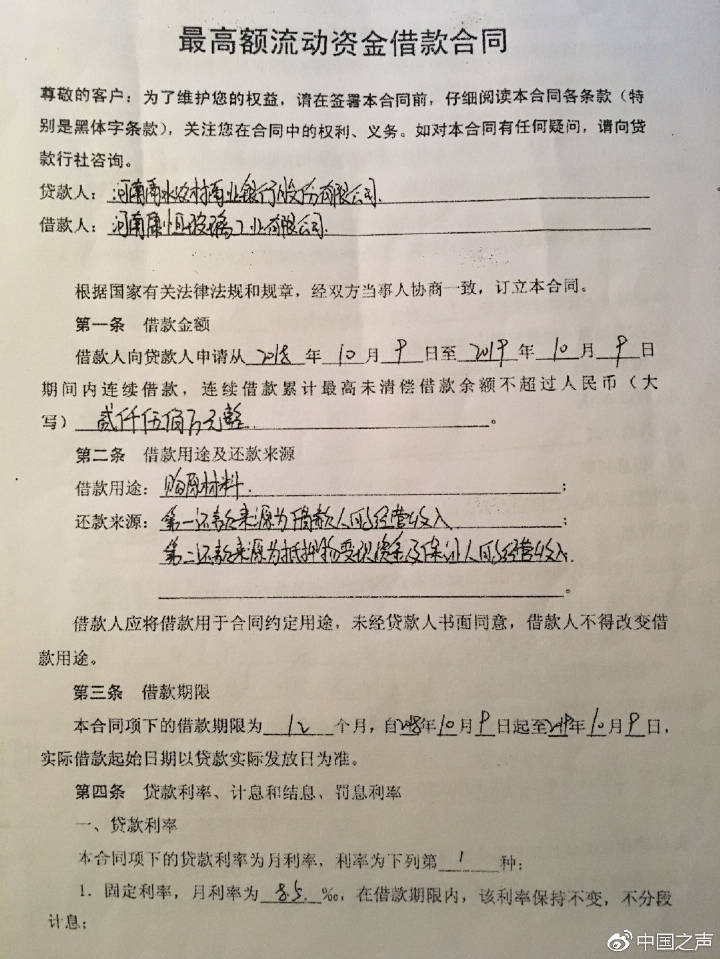 最高额流动资金借款合同
尊敬的客户：为了维护您的权益，请在签署本合同前，仔细阅读本合同各条款（特
别是黑体字条款），关注您在合同中的权利、义务。如对本合同有任何疑问，请向贷
款行社咨询。
贷款人：河南商水农村商业银行股份有限公司.
借款人：河南康恒玻璃工业有限公司.
根据国家有关法律法规和规章，经双方当事人协商一致，订立本合同。
第一条 借款金额
借款人向贷款人申请从 2018 年 10 月 9 日至 2019 年 10 月 9 日
期间内连续借款，连续借款累计最高未清偿借款余额不超过人民币（大
写）贰仟伍佰万元整。
第二条 借款用途及还款来源
借款用途：购原材料.；
还款来源：第一还款来源为借款人的经营收入；
第二还款来源为抵押物变现资金及保证人的经营收入.
。
借款人应将借款用于合同约定用途，未经贷款人书面同意，借款人不得改变借
款用途。
第三条 借款期限
本合同项下的借款期限为 12 个月，自2018年10月9日起至2019年10月9日，
实际借款起始日期以贷款实际发放日为准。
第四条 贷款利率、计息和结息、罚息利率
一、贷款利率
本合同项下的贷款利率为月利率，利率为下列第 1 种：
1．固定利率，月利率为 8.5 ‰，在借款期限内，该利率保持不变，不分段
计息；
中国之声